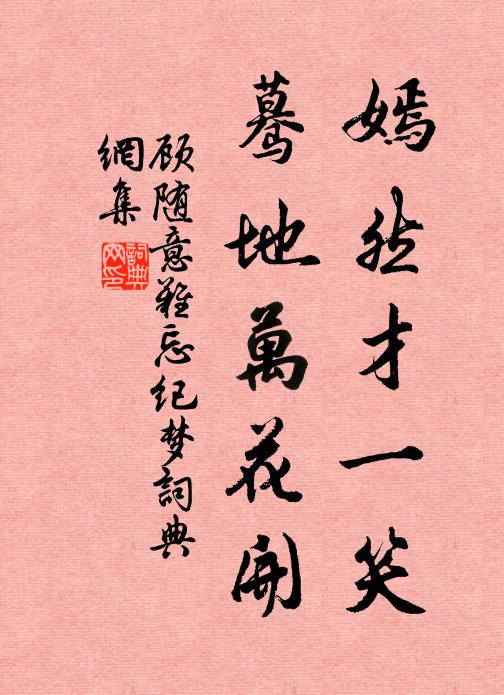 嫣然才一笑
驀地萬花開
顾随意難忘纪梦詞典
網集
詞典
网印